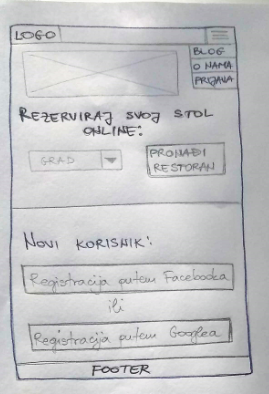 LOGO
BLOG
O NAMA
PRIJAVA
REZERVIRAJ SVOJ STOL
ONLINE:
GRAD
PRONAĐI
RESTORAN
NOVI KORISNIK:
Registracija putem Facebooka
ili
Registracija putem Googlea
FOOTER